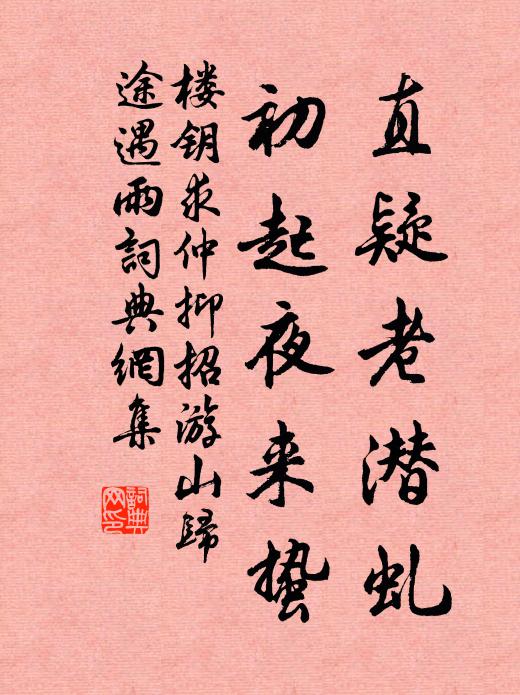 直疑老潜虬
初起夜来蛰
楼钥求仲抑招游山歸
途遇雨詞典網集
詞典
网印